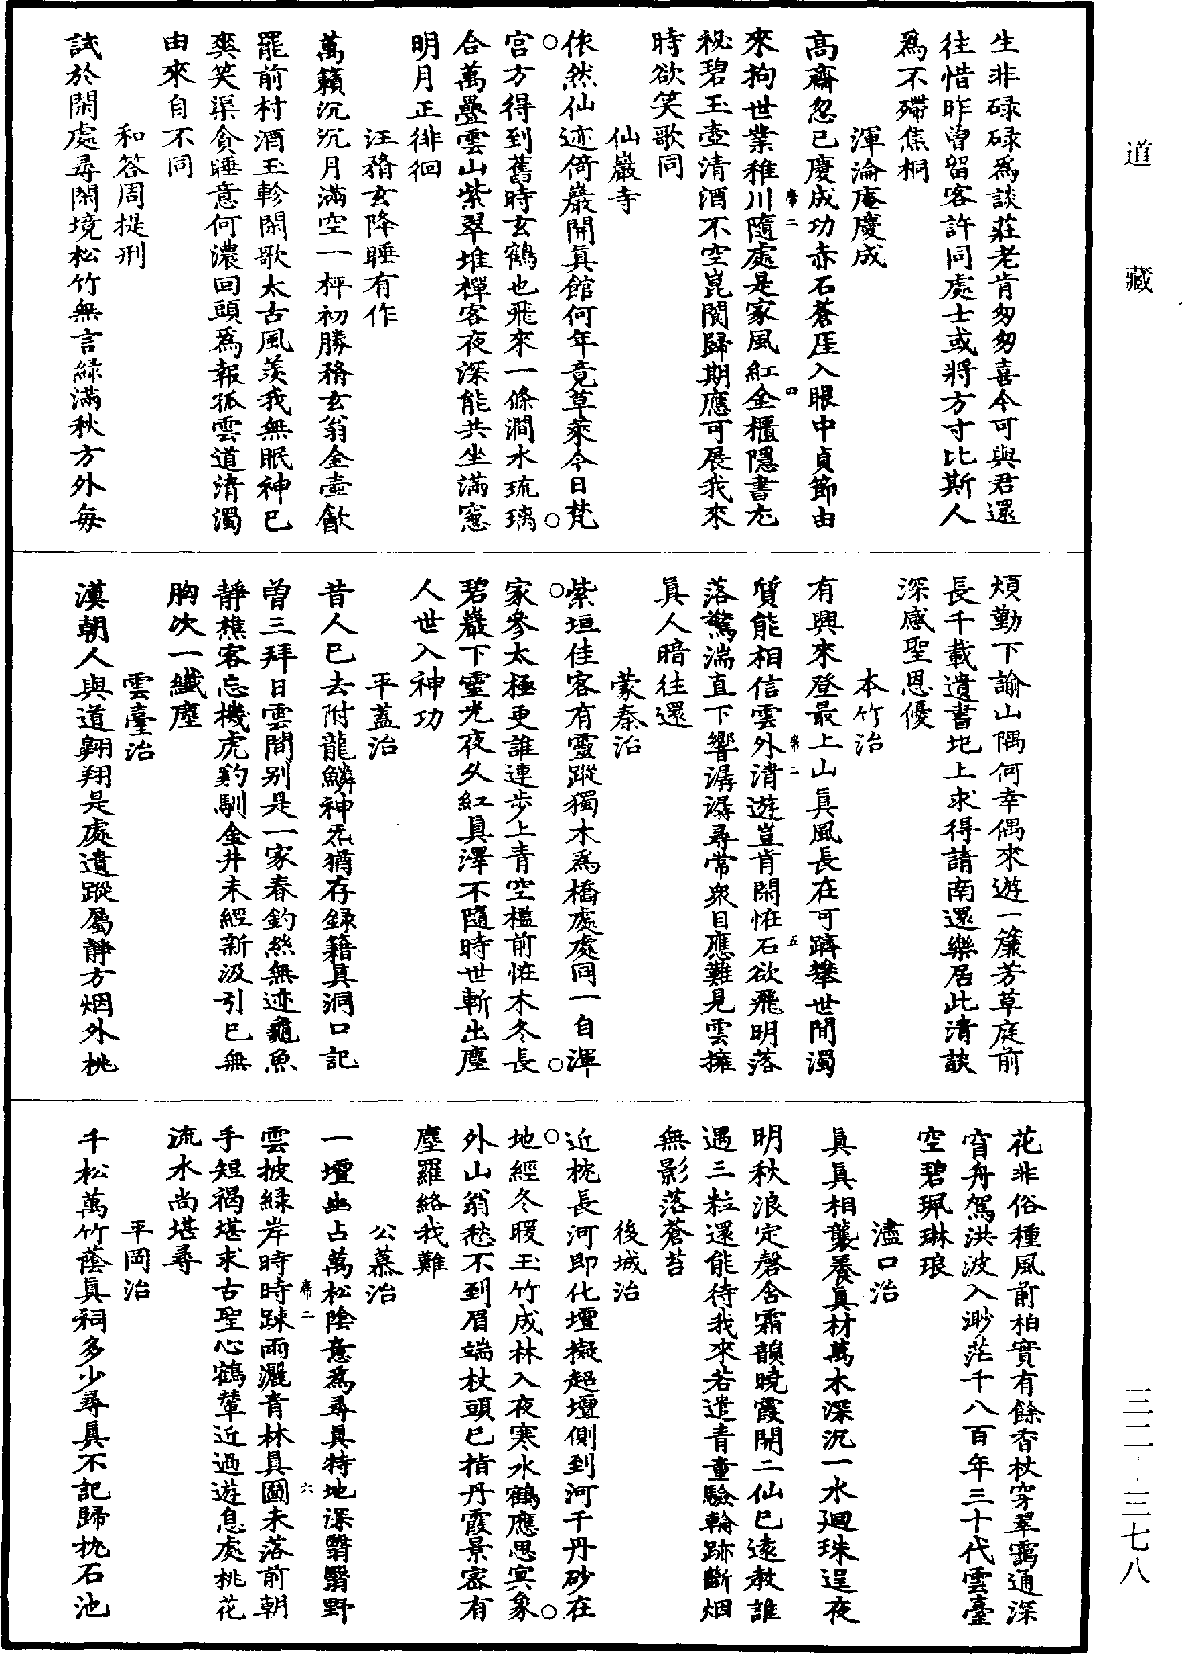 道藏
生非碌碌為談莊老肯匆匆喜今可與君還
往惜昨曾留客許同處士或將方寸比斯人
為不殫焦桐
渾淪庵慶成
高齋忽已慶成功赤石蒼厓入眼中貞節由
來拘世業稚川隨處是家風紅金櫃隱書尤
秘碧玉壺清酒不空崑閬歸期應可展我來
時欲笑歌同
仙巖寺
依然仙迹倚巖開真館何年竟草萊今日梵
宮方得到舊時玄鶴也飛來一條澗水琉璃
合萬疊雲山紫翠堆禪客夜深能共坐滿窓
明月正徘徊
汪務玄降睡有作
萬籟沉沉月滿空一枰初勝務玄翁金壺飲
罷前村酒玉軫閑歌太古風羨我無眠神已
爽笑渠貪睡意何濃回頭為報孤雲道清濁
由來自不同
和答周提刑
試於閑處尋閑境松竹無言綠滿秋方外每
煩勤下諭山隅何幸偶來遊一簾芳草庭前
長千載遺書圯上求得請南還樂居此清談
深感聖恩優
本竹治
有興來登最上山真風長在可躋攀世間濁
質能相信雲外清遊豈肯閑怪石欲飛明落
落驚湍直下響潺潺尋常衆目應難見雲擁
真人暗往還
蒙秦治
紫垣佳客有靈蹤獨木為橋處處同一自渾
家參太極更誰連步上青空檻前怪木冬長
碧巖下靈光夜久紅真澤不隨時世斬出塵
人世入神功
平蓋治
昔人已去附龍鱗神炁猶存録籍真洞口記
曾三拜日雲間别是一家春釣絲無迹龜魚
靜樵客忘機虎豹馴金井未經新汲引已無
胸次一纖塵
雲臺治
漢朝人與道翺翔是處遺蹤屬靜方烟外桃
花非俗種風前柏實有餘香杖穿翠竇通深
窅舟駕洪波入渺茫千八百年三十代雲臺
空碧珮琳琅
濜口治
真真相襲養真材萬木深沉一水迴珠逞夜
明秋浪定磬含霜韻曉霞開二仙已遠教誰
遇三粒還能待我來若遣青童驗輪跡斷烟
無影落蒼苔
後城治
近枕長河即化壇擬超壇側到河干丹砂在
地經冬暖玉竹成林入夜寒水鶴應思㝠象
外山翁愁不到眉端杖頭已指丹霞景宻有
塵羅絡我難
公慕治
一壇幽占萬松陰意為尋真特地深翳翳野
雲披綠岸時時踈雨灑青林真圖未落前朝
手短褐堪求古聖心鶴輦近過遊息處桃花
流水尚堪尋
平岡治
千松萬竹蔭真祠多少尋真不記歸枕石池
三二·三七八